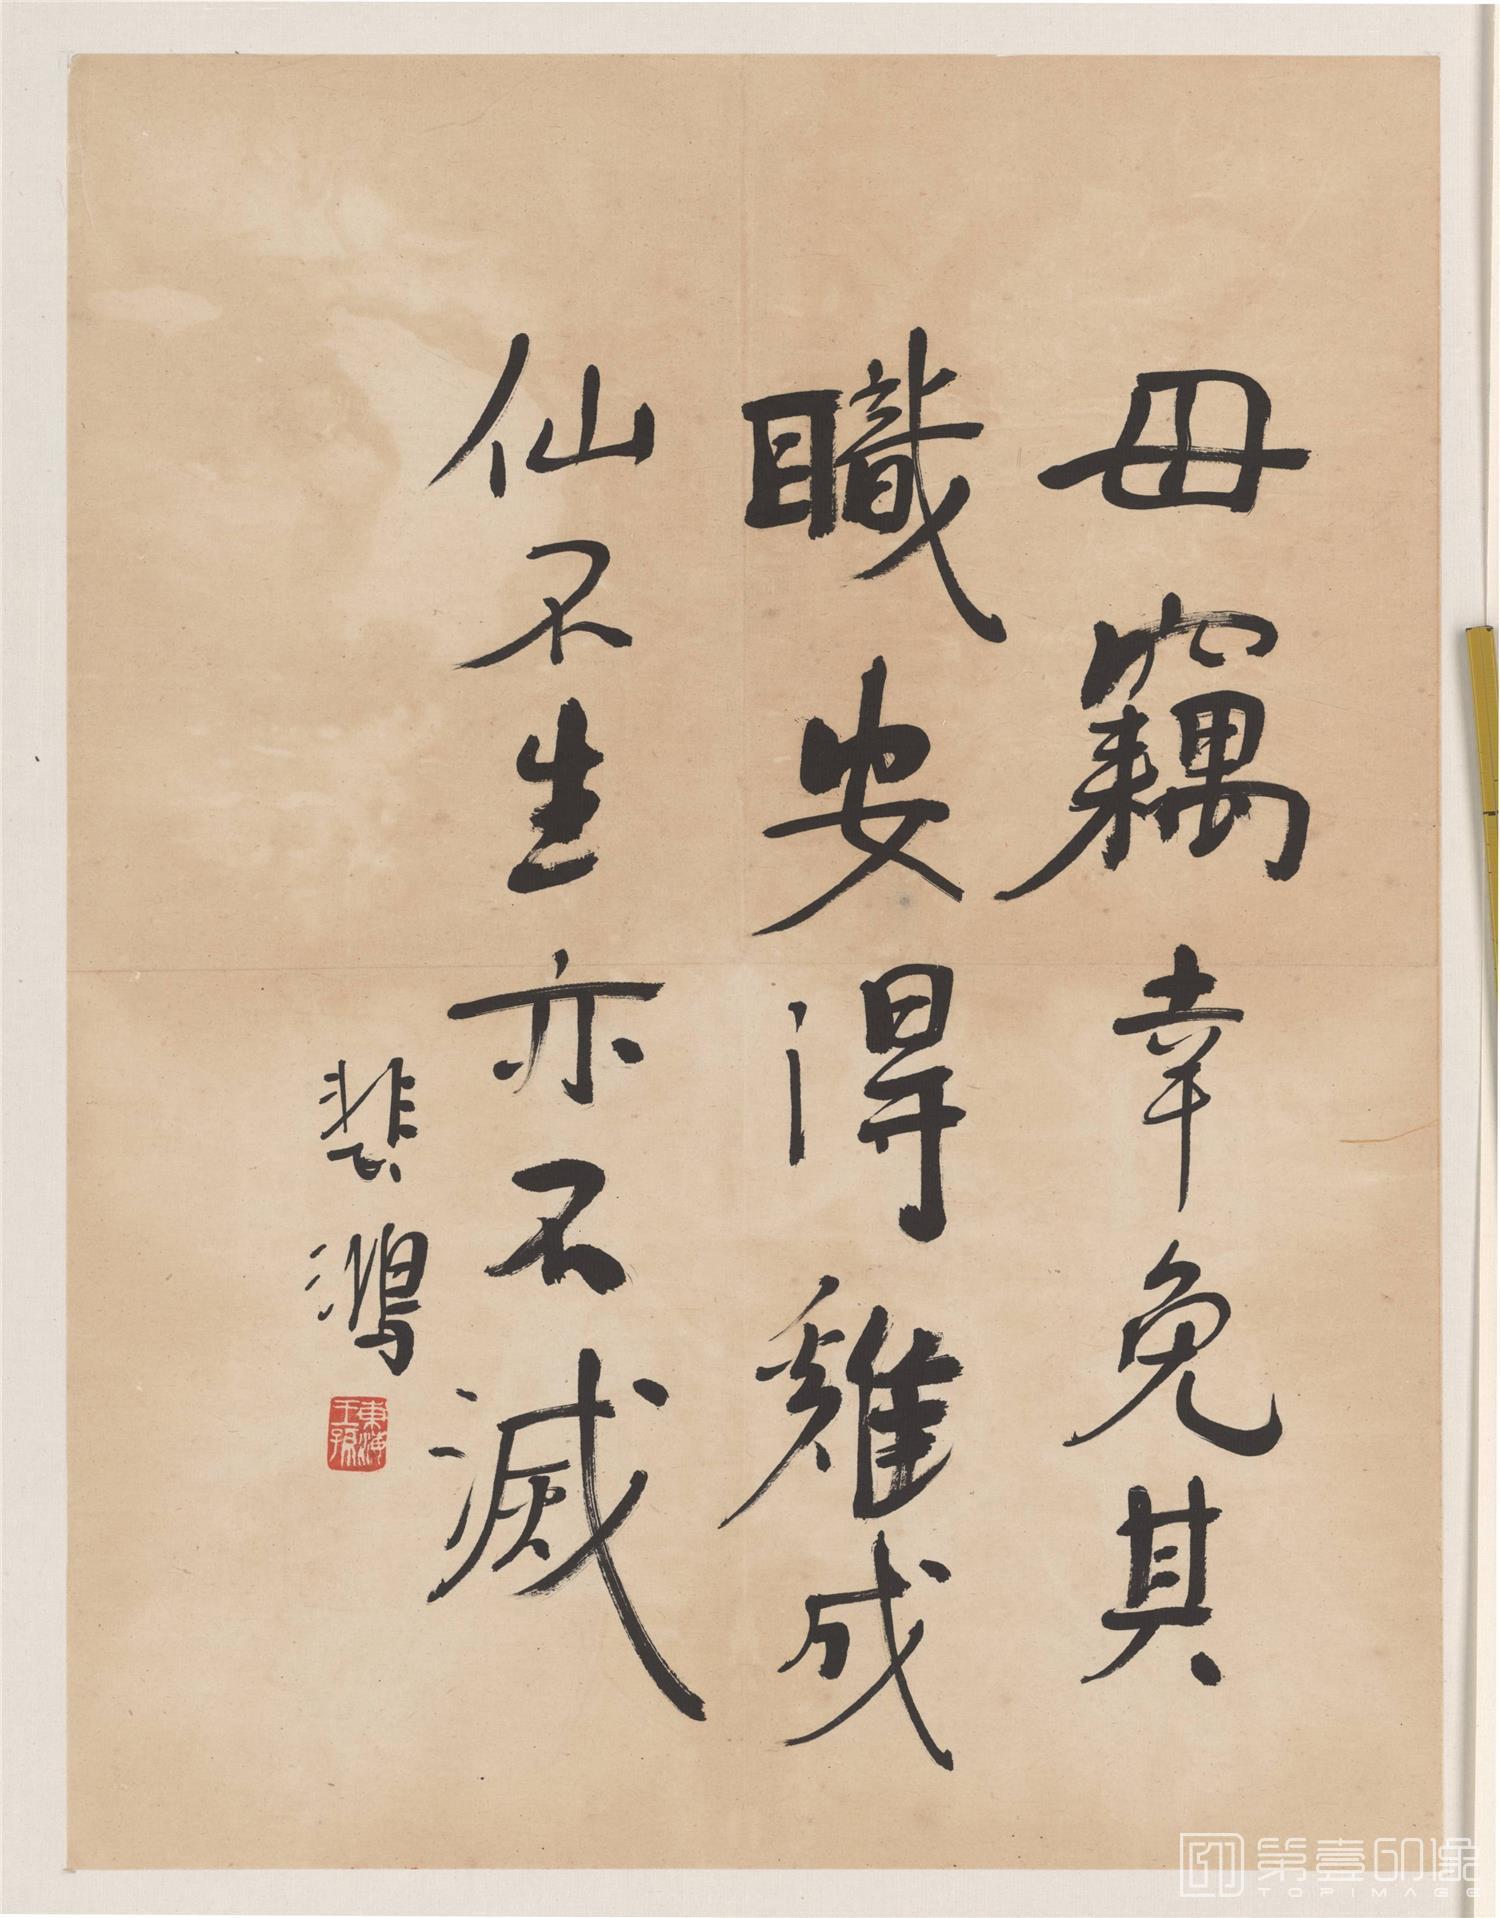 毋竊幸免其
職安得雞成
仙不生亦不滅
悲鴻
東海
王孫
第壹印像
TOPIMAGE